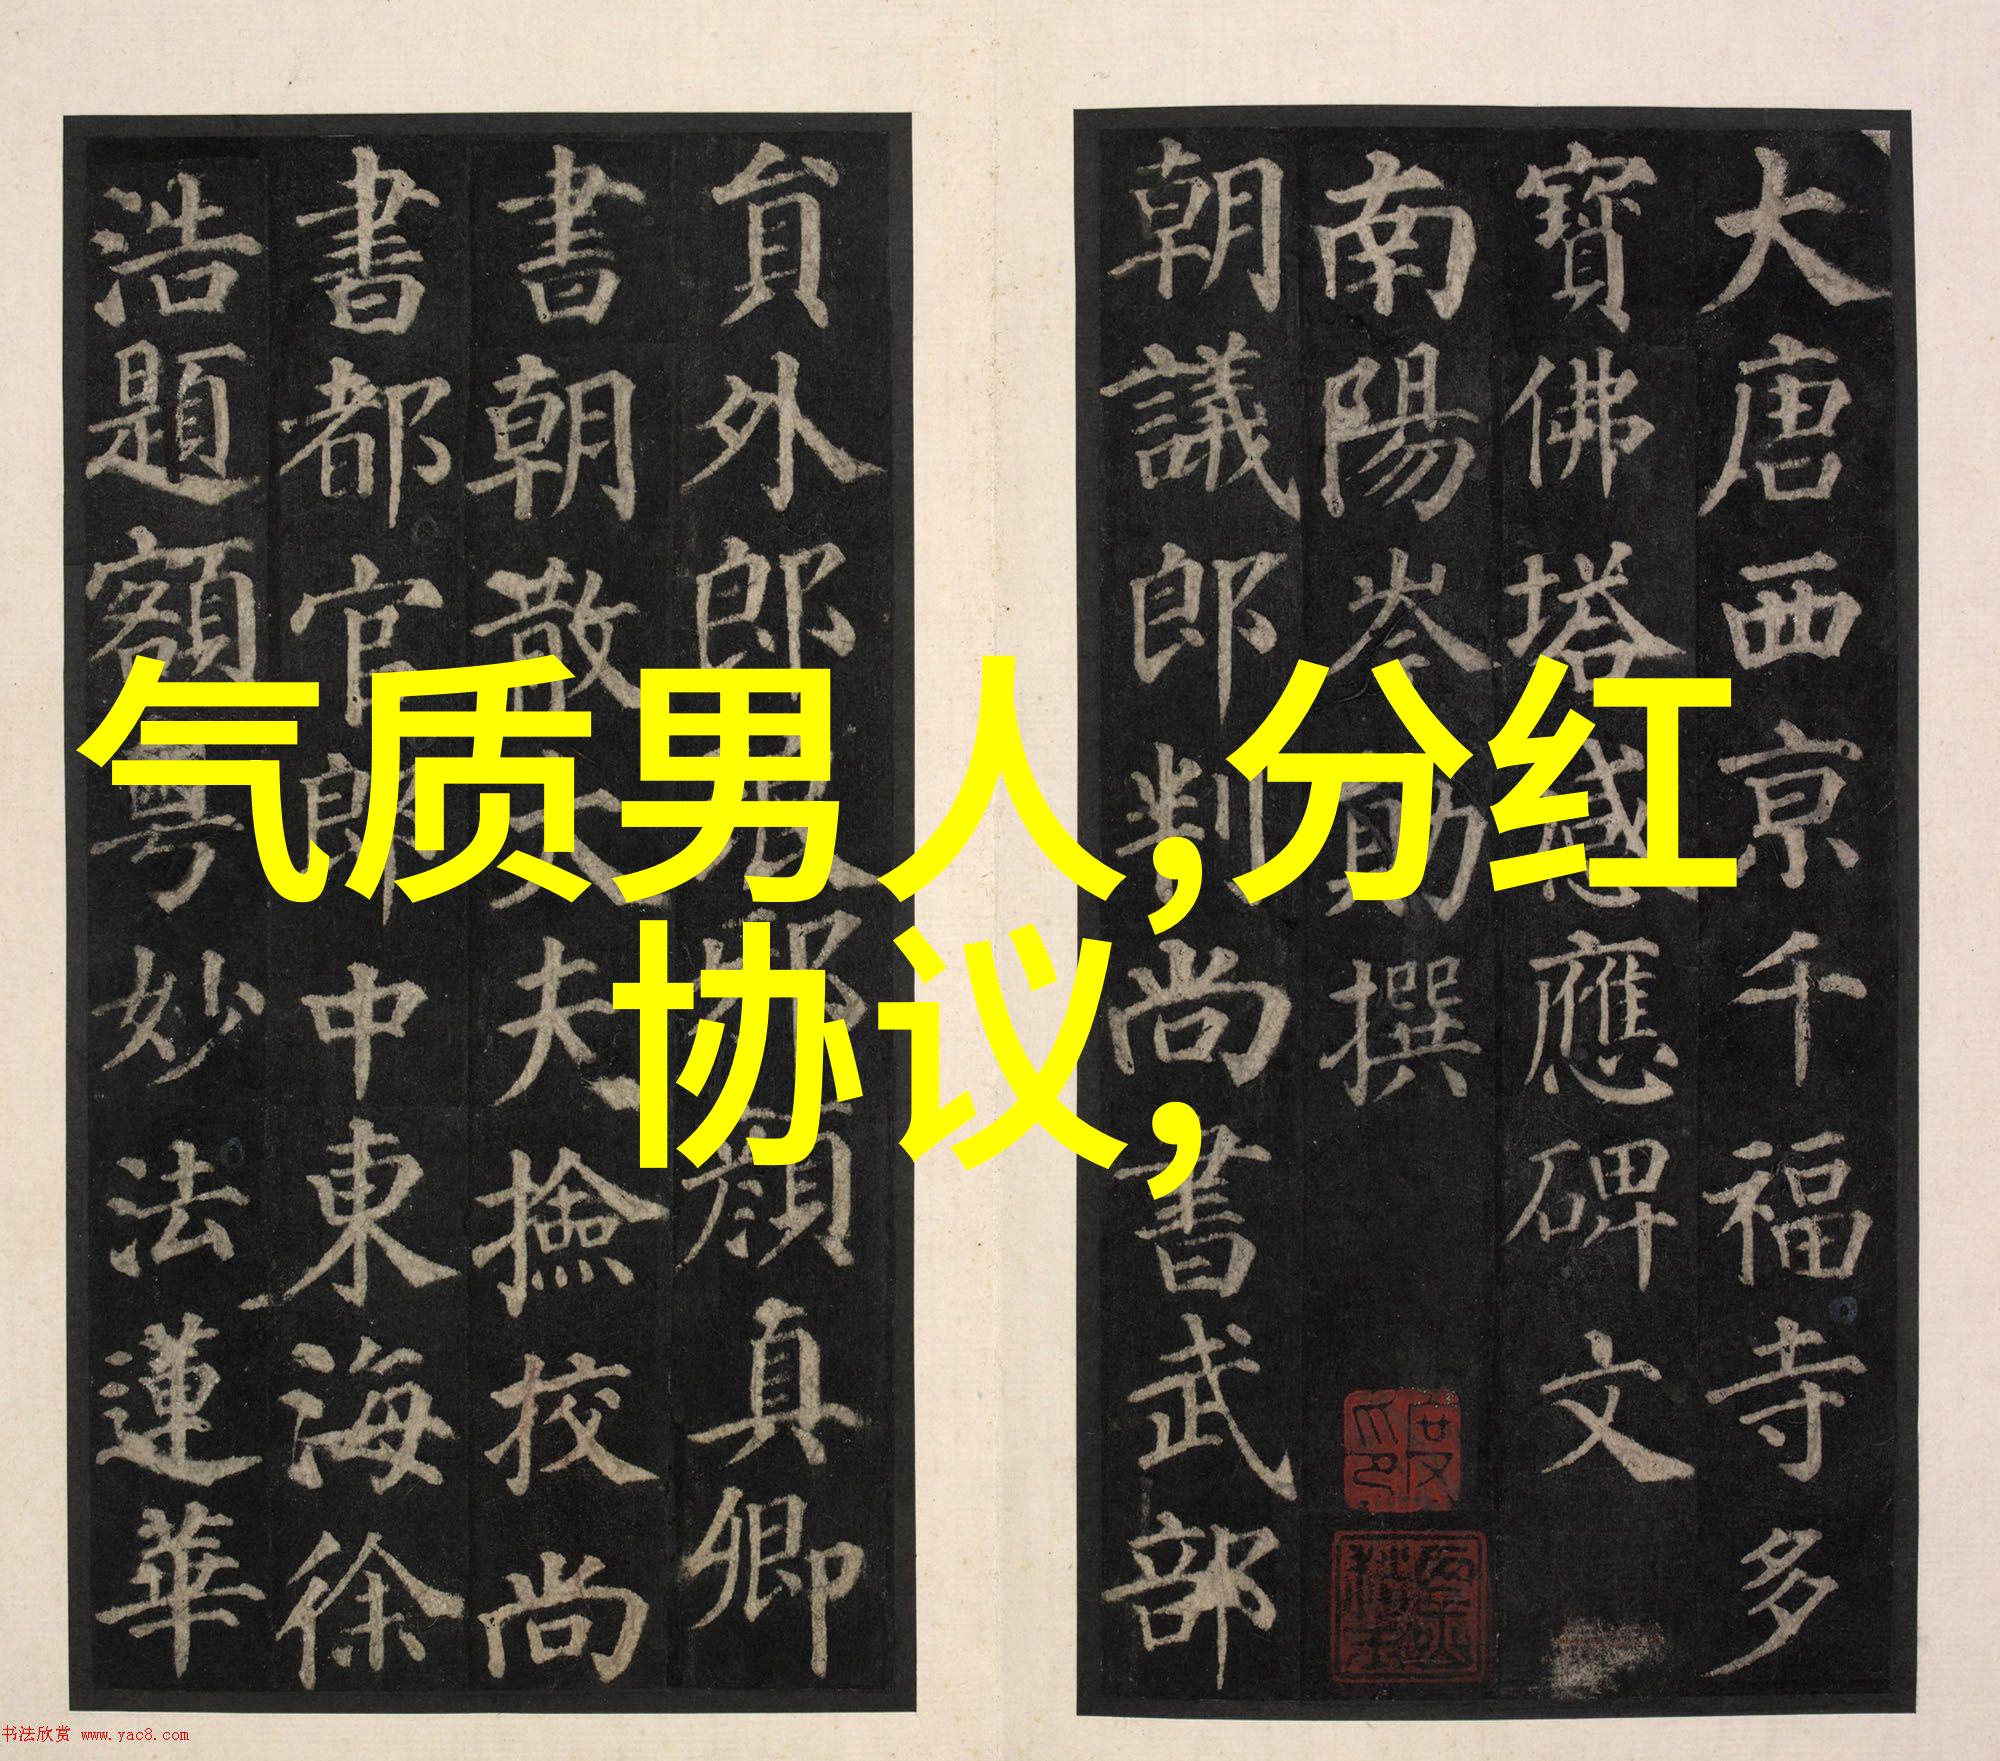 气质男人,分红
协议,
大唐西亰千福寺多
寶佛塔感應碑文
南陽岑勛撰
朝議郎判尚書武部
貟外郎琅邪顔真卿
書朝散大夫撿校尚
書都官郎中東海徐
浩題額粤妙法蓮華
书法欣赏 www.yac8.com